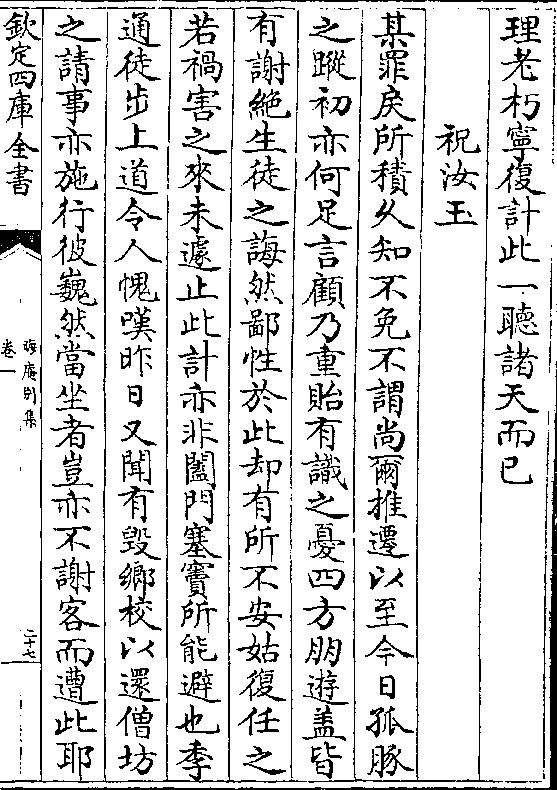 理老朽寧復計此一聽諸天而已
祝汝玉
某罪戾所積久知不免不謂尚爾推遷以至今日孤豚
之蹤初亦何足言顧乃重貽有識之憂四方朋遊盖皆
有謝絶生徒之誨然鄙性於此却有所不安姑復任之
若禍害之來未遽止此計亦非闔門塞竇所能避也季
通徒步上道令人愧嘆昨日又聞有毀鄉校以還僧坊
之請事亦施行彼巍然當坐者豈亦不謝客而遭此耶
欽定四庫全書
晦庵别集
卷一
二十七